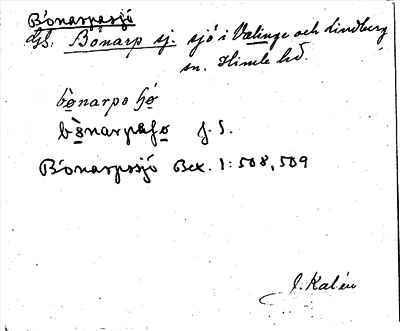 Bönarpasjö
djb. Bönarp sj. sjö i Valinge och Lindberg
sn. Himle hd.
bònarpo ʃó
bònarpaʃo J. S.
Bönarpssjö Bex. 1: 508, 509
J. Kalén